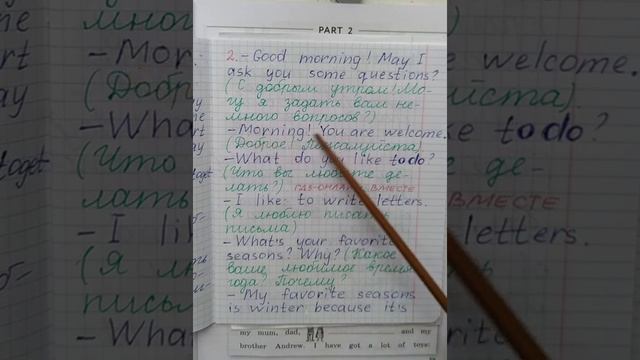 PART 2
2. - Good morning! May I
ask you some questions?
(С добрым утром! Мо-
гу я задать вам не-
много вопросов?)
- Morning! You are welcome.
(Доброе! Пожалуйста)
- What do you like to do?
(Что вы любите де-
лать?) ГДЗ-ОНЛАЙН ВМЕСТЕ
- I like to write letters.
(Я люблю писать
письма)
- What's your favorite
seasons? Why? (Какое
ваше любимое время
года? Почему?
- My favorite seasons
is winter because it's
my mum, dad, and my
brother Andrew. I have got a lot of toys: